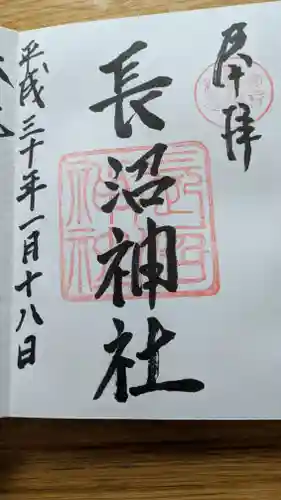 奉拝
長沼神社
平成三十年一月十八日